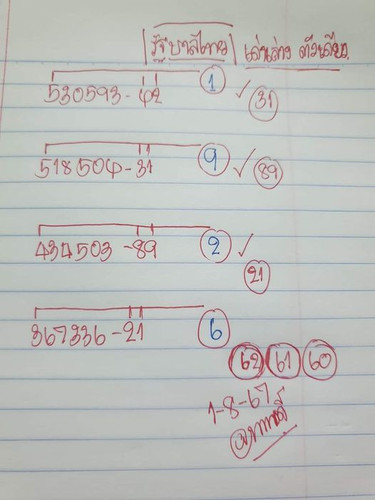 รัฐบาลไทย เด่นล่าง ตัวเดียว
530593-42 1 ✓ 31
518504-31 9 ✓ 89
434503-89 2 ✓ 21
367336-21 6
62 61 60
1-8-67